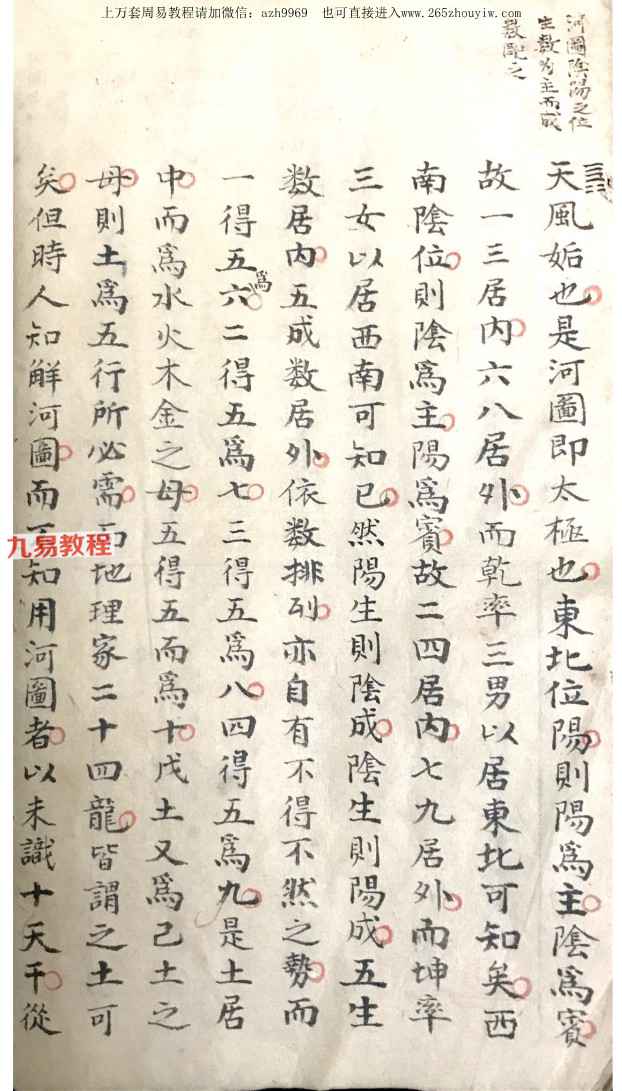 上万套周易教程请加微信：azh9969 也可直接进入www.265zhouyiw.com
河圖陰陽之位
生數為主而成
數配之
天風姤也是河圖即太極也東北位陽則陽爲主陰爲賓
故一三居内六八居外而乾率三男以居東北可知矣西
南陰位則陰爲主陽爲賓故二四居内七九居外而坤率
三女以居西南可知已然陽生則陰成陰生則陽成五生
数居内五成数居外依数排列亦自有不得不然之勢而
一得五爲六二得五爲七三得五爲八四得五爲九是土居
中而爲水火木金之母五得五而爲十戊土又爲己土之
母則土爲五行所必需而地理家二十四龍皆謂之土可
矣但時人知解河圖而知用河圖者以未識十天干從
九易教程